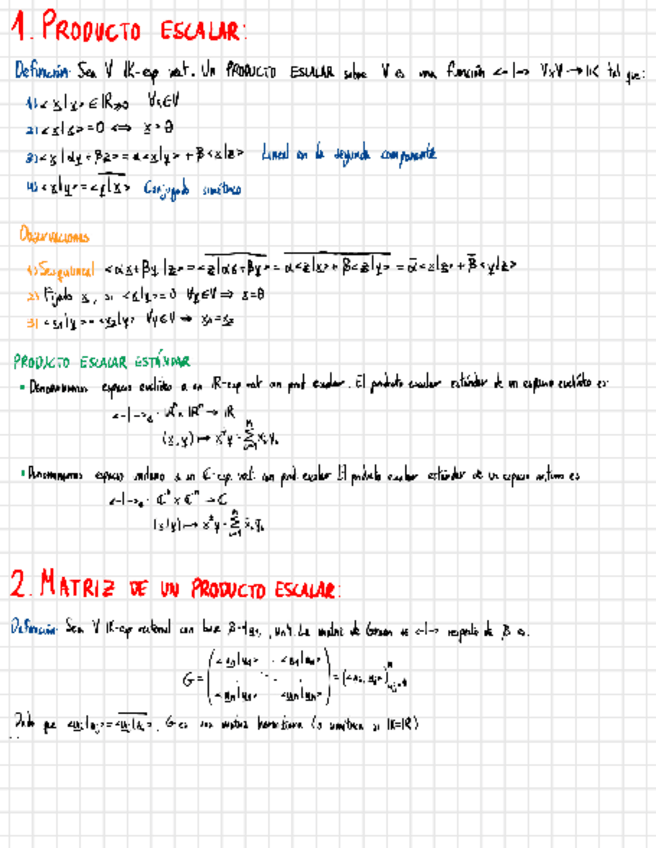 1. PRODUCTO ESCALAR:
Definición: Sea V IK-esp vect. Un PRODUCTO ESCALAR sobre V es una función <-|-> V×V→IK tal que:
1) <x|x> ∈ IR≥0 ∀x∈V
2) <x|x>=0 ⟺ x=θ
3) <x|αy+βz>=α<x|y>+β<x|z> Lineal en la segunda componente
4) <x|y>=\overline{<y|x>} Conjugado simétrico
Observaciones
1) Sesquilineal <αx+βy|z>=\overline{<z|αx+βy>}=\overline{α<z|x>+β<z|y>}=ᾱ<x|z>+β̄<y|z>
2) Fijado x, si <x|y>=0 ∀y∈V ⇒ x=θ
3) <x₁|y>=<x₂|y> ∀y∈V ⇒ x₁=x₂
PRODUCTO ESCALAR ESTÁNDAR
• Denominamos espacio euclídeo a un IR-esp vect con prod escalar. El producto escalar estándar de un espacio euclídeo es:
<-|->ₑ: IRⁿ×IRⁿ→IR
(x,y)↦xᵀy=∑
• Denominamos espacio unitario a un ℂ-esp. vect. con prod. escalar El producto escalar estándar de un espacio unitario es
<-|->ₑ: ℂⁿ×ℂⁿ→ℂ
2. MATRIZ DE UN PRODUCTO ESCALAR:
Definición: Sea V IK-esp vectorial con base B= La matriz de Gram de <-|-> respecto de B es.
G=
Dado que <uᵢ|uⱼ>=\overline{<uⱼ|uᵢ>}, G es una matriz hermitiana (o simétrica si IK=IR)